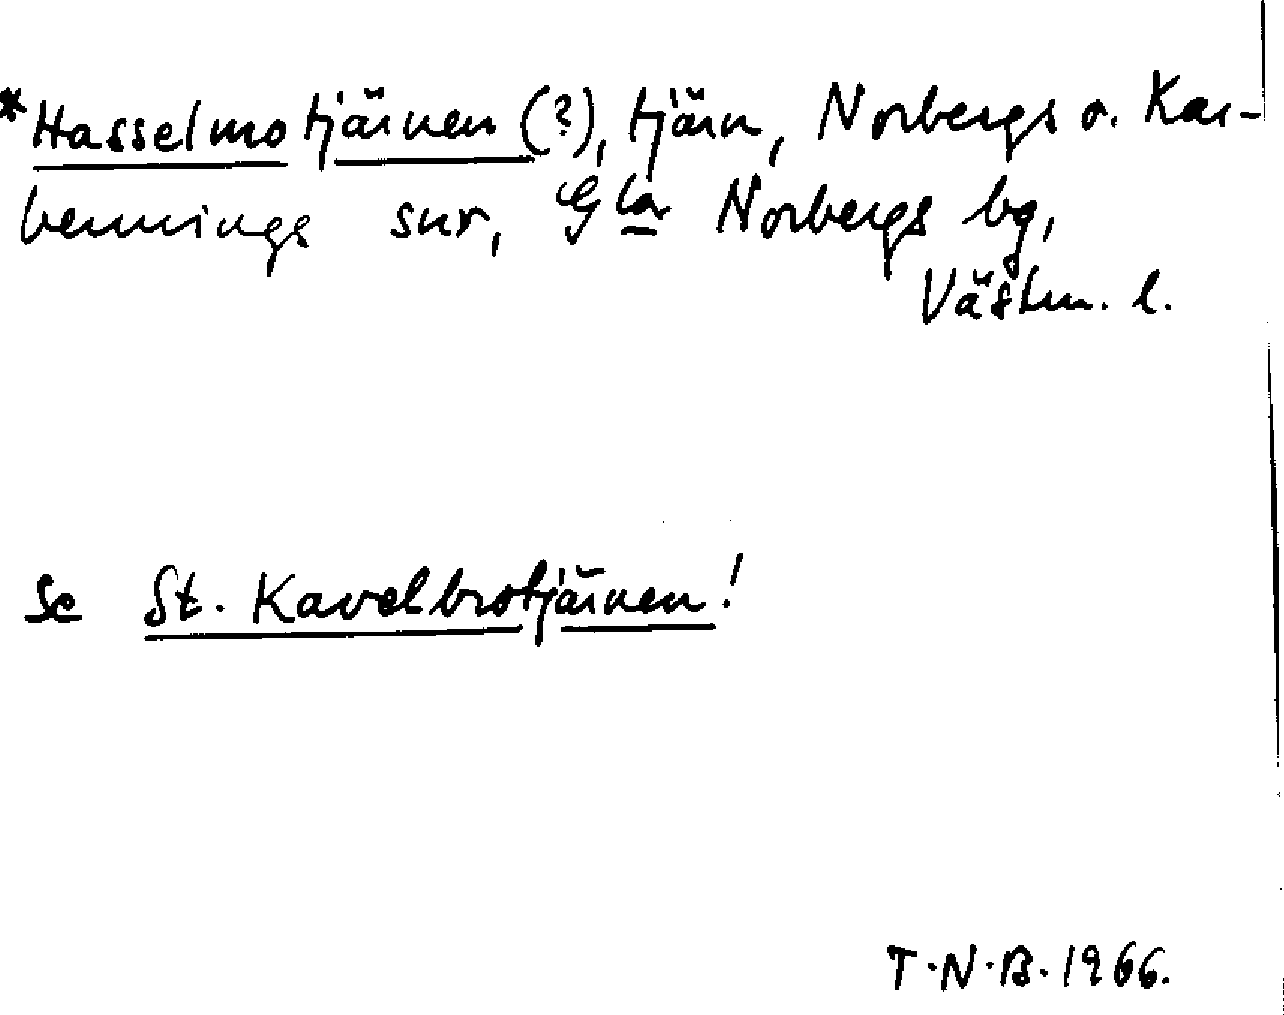 *Hasselmotjärnen (?), tjärn, Norbergs o. Kar-
bennings snr, Gla Norbergs bg,
Västm. l.
Se St. Kavelbrotjärnen!
T.N.B. 1966.